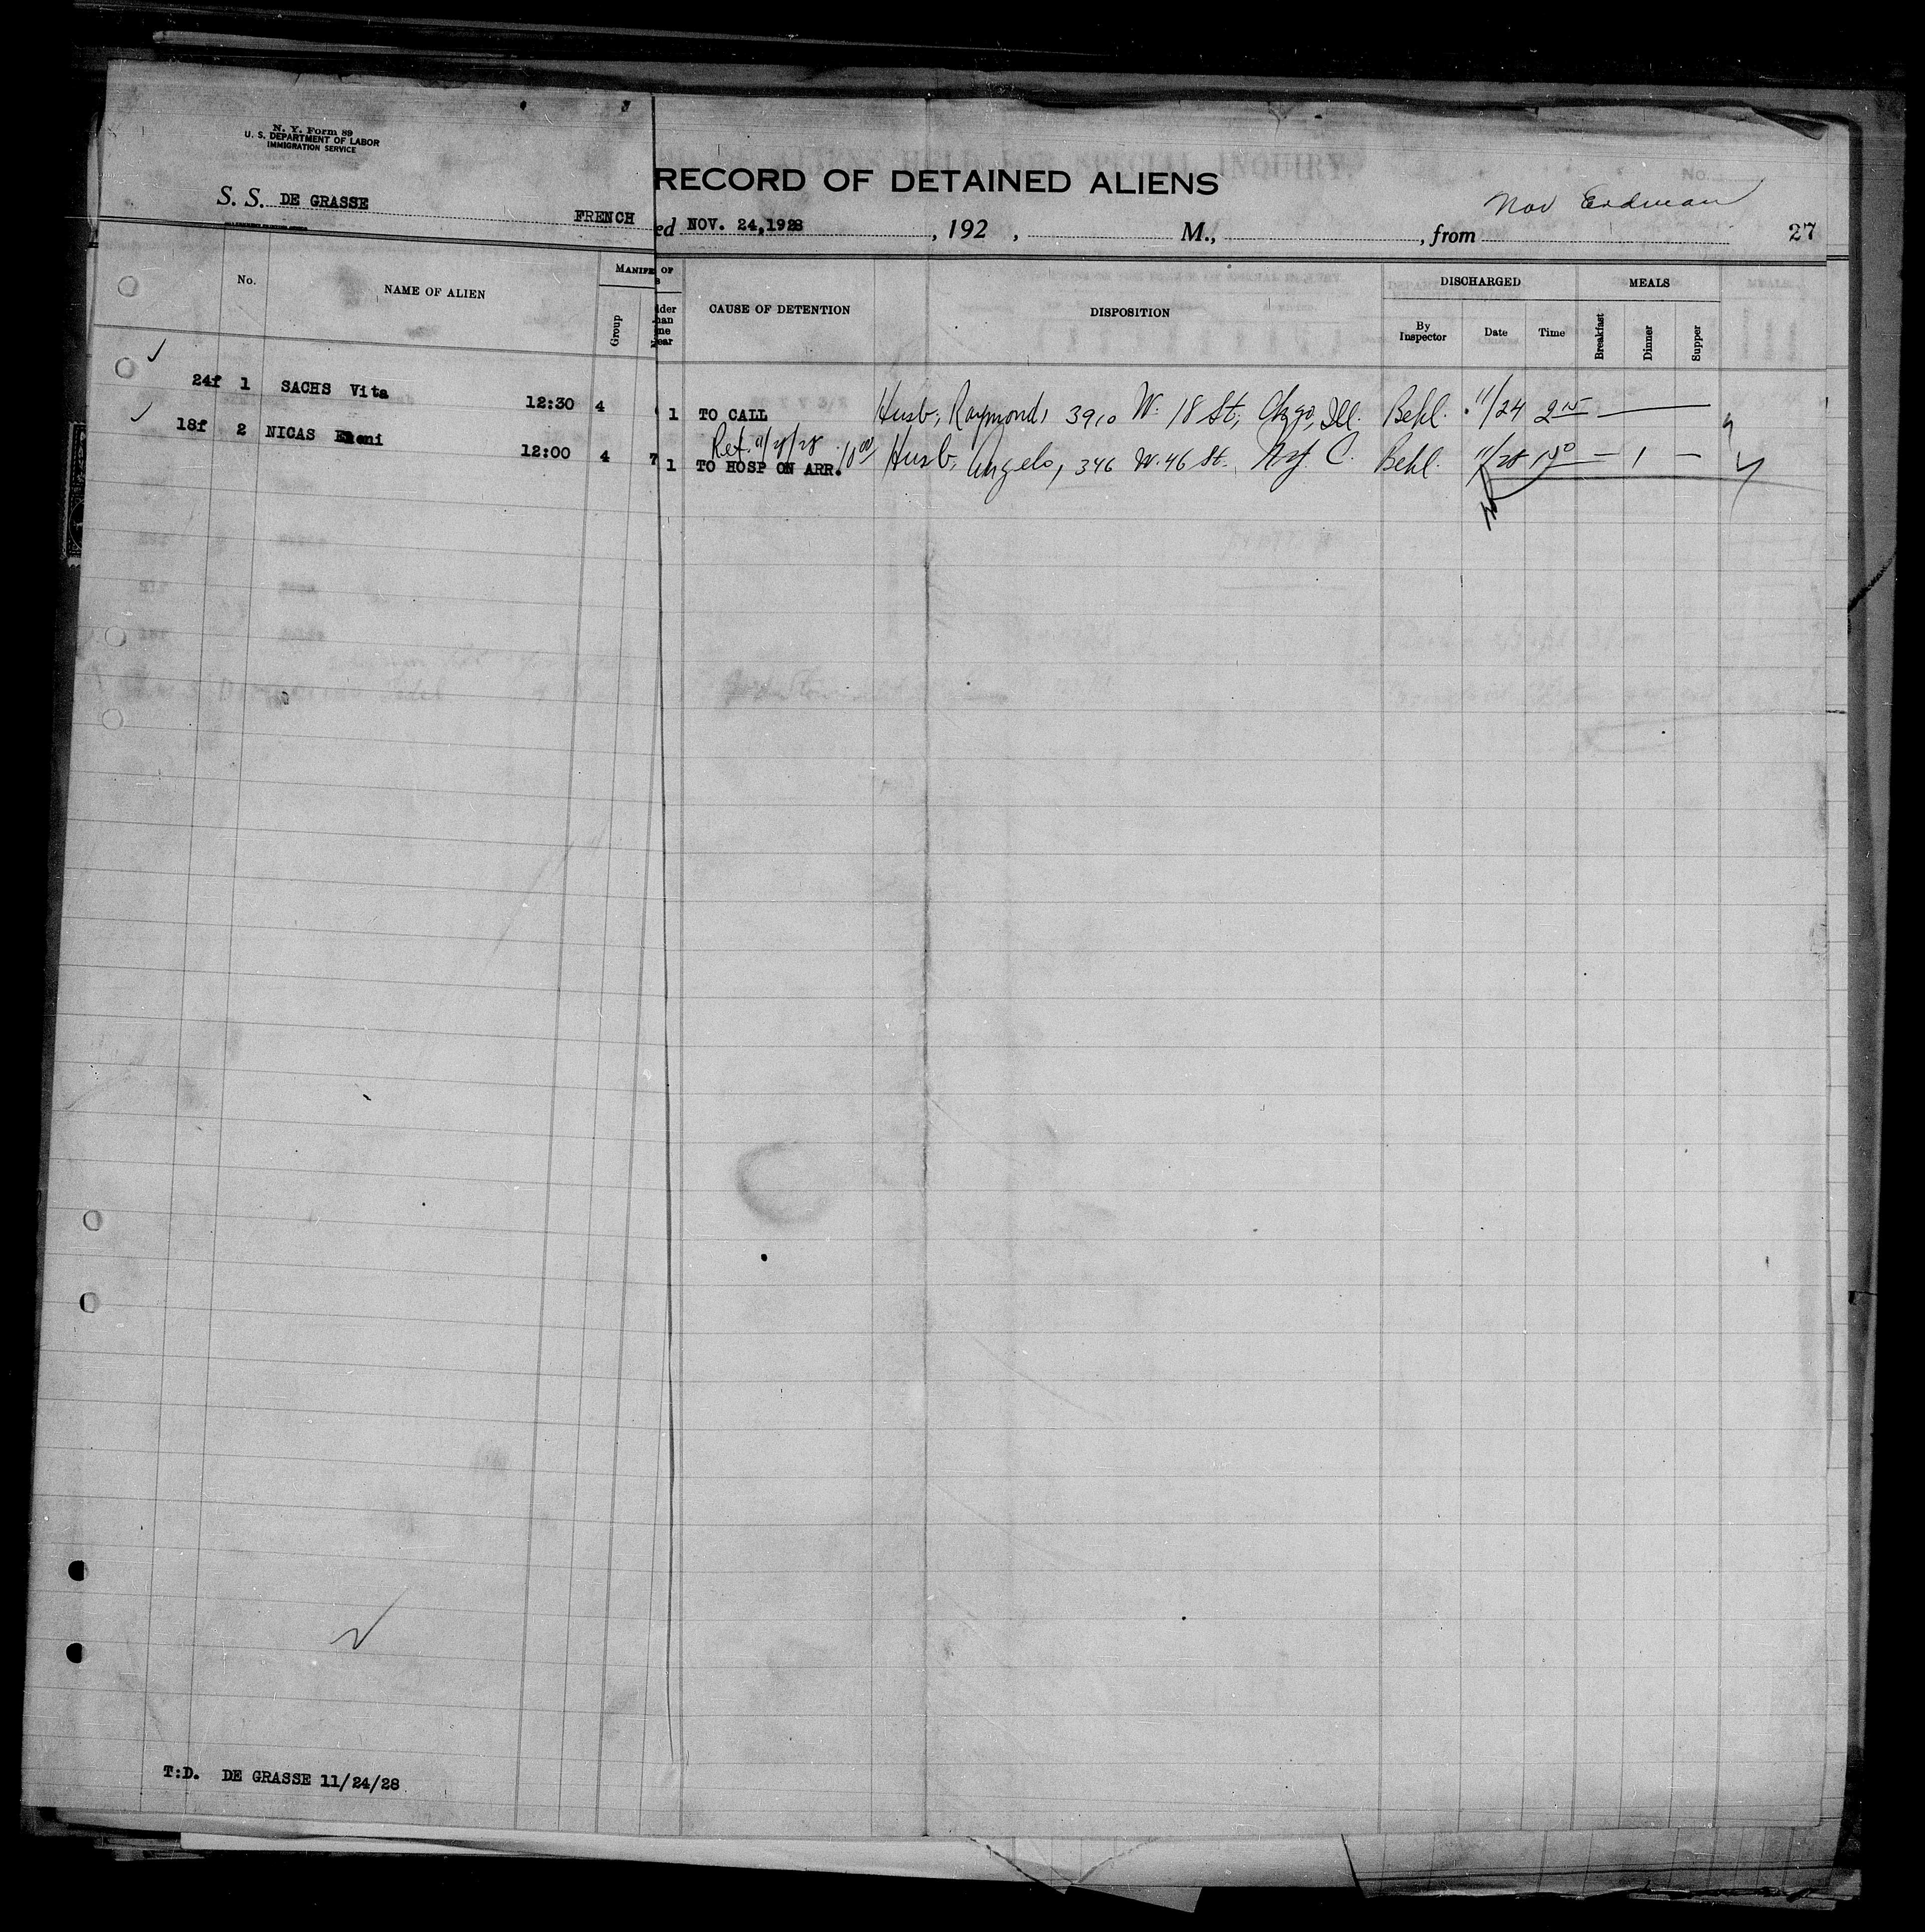 N. Y. Form 89
U. S. DEPARTMENT OF LABOR
IMMIGRATION SERVICE
RECORD OF DETAINED ALIENS
S. S. DE GRASSE FRENCH ed NOV. 24, 1928 , 192 , M., , from
Nov Erdman
27
No. NAME OF ALIEN Group CAUSE OF DETENTION DISPOSITION DISCHARGED MEALS
By Inspector Date Time Breakfast Dinner Supper
24f 1 SACHS Vita 12:30 4 1 TO CALL Husb, Raymond, 3910 W. 18 St, Chgo, Ill. Behl. 11/24 2 15
18f 2 NICAS Eleni 12:00 4 7 1 TO HOSP ON ARR. Husb, Angelo, 346 W. 46 St. N.Y.C. Behl. 11/28 1
T:D. DE GRASSE 11/24/28